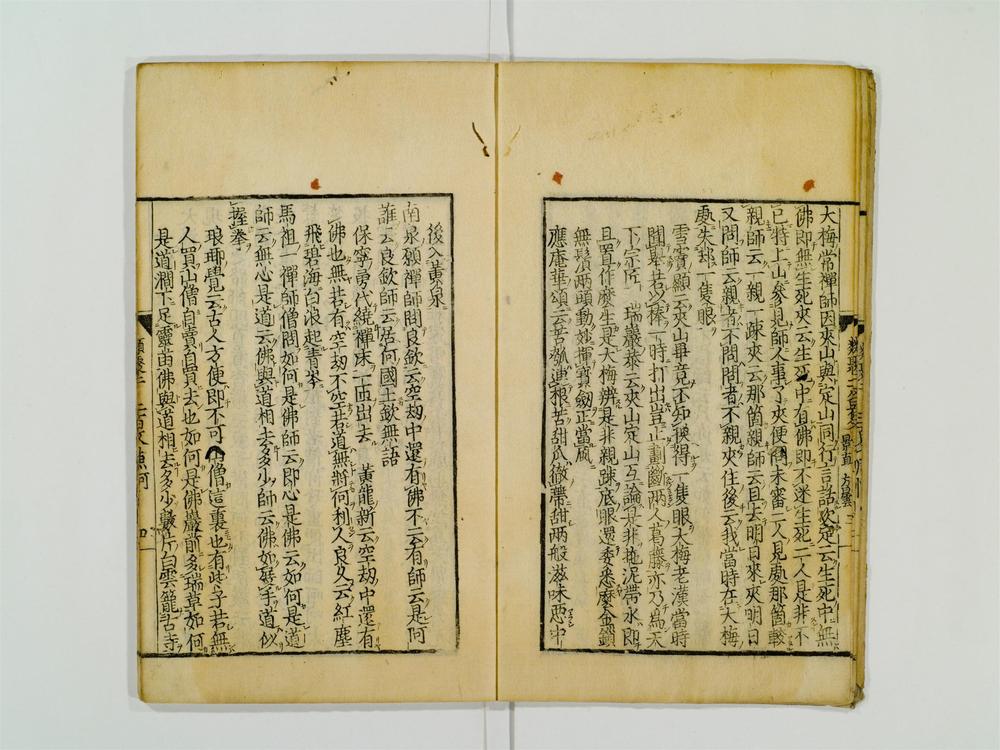 大梅常禪師因夾山與定山同行言話次定云生死中無
佛即無生死夾云生死中有佛即不迷生死二人是非不
已特上山參見師人事了夾便問未審二人見處那箇較
親師云一親一疎夾云那箇親師云且去明日來夾明日
又問師云親者不問問者不親夾住後云我當時在大梅
處失却一隻眼
雪竇顯云夾山畢竟不知換得一隻眼大梅老漢當時
聞舉若以棒一時打出豈止劃斷兩人葛藤亦乃爲天
下宗匠 瑞巖恭云夾山定山互論是非拖泥帶水即
且置作麼生是大梅辨是非親疎底眼還委悉麼金鎖
無鬚兩頭動妙揮寶劒正當風
應庵華頌云苦瓠連根苦甜瓜徹蔕甜兩般滋味惡中
後入黄泉
南泉願禪師問良欽云空劫中還有佛不云有師云是何
誰云良欽師云居何國土欽無語
保寧勇代繞禪床一匝出去 黄龍新云空劫中還有
佛也無若有空劫不空若道無將何利人良久云紅塵
飛碧海白浪起青岑
馬祖一禪師僧問如何是佛師云即心是佛云如何是道
師云無心是道云佛與道相去多少師云佛如展手道似
握拳
琅琊覺云古人方便即不可山僧這裏也有些子若無
人買山僧自賣自買去也如何是佛巖前多瑞草如何
是道澗下足靈苗佛與道相去多少數片白雲籠古寺